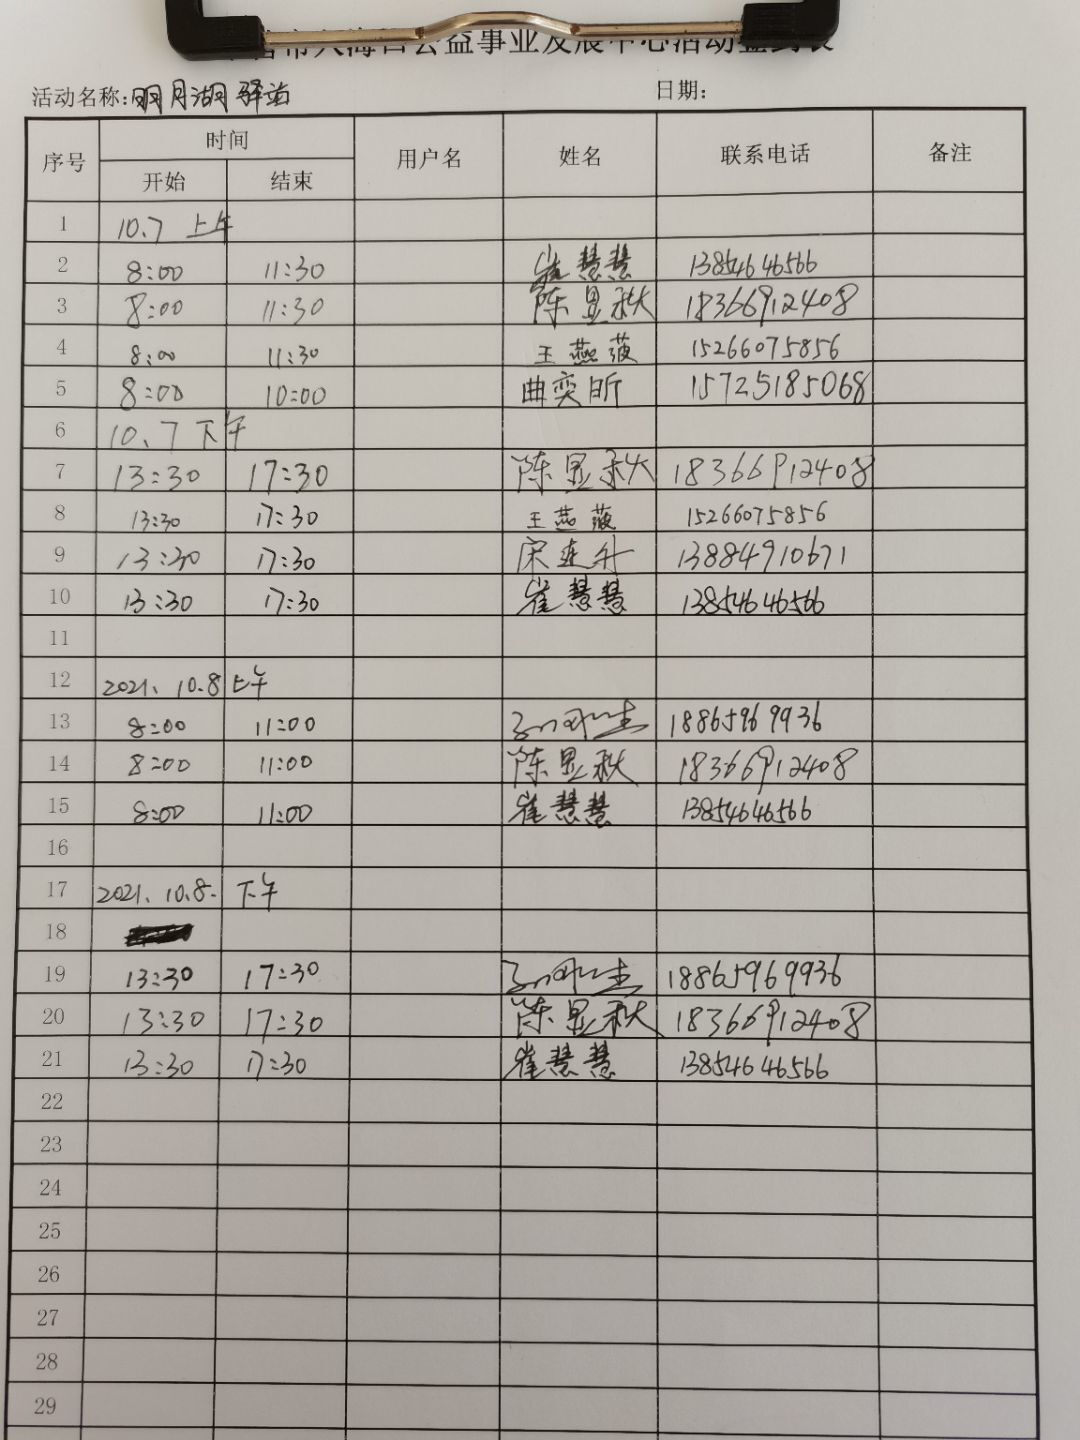 公益事业发展中心活动签到表
活动名称：明月湖驿站 日期：
序号 时间 用户名 姓名 联系电话 备注
开始 结束
1 10.7 上午
2 8:00 11:30 崔慧慧 13854646566
3 8:00 11:30 陈显秋 18366912408
4 8:00 11:30 王燕菠 15266075856
5 8:00 10:00 曲奕昕 15725185068
6 10.7 下午
7 13:30 17:30 陈显秋 18366912408
8 13:30 17:30 王燕菠 15266075856
9 13:30 17:30 宋连升 13884910671
10 13:30 17:30 崔慧慧 13854646566
11
12 2021.10.8 上午
13 8:00 11:00 18865969936
14 8:00 11:00 陈显秋 18366912408
15 8:00 11:00 崔慧慧 13854646566
16
17 2021.10.8. 下午
18
19 13:30 17:30 18865969936
20 13:30 17:30 陈显秋 18366912408
21 13:30 17:30 崔慧慧 13854646566
22
23
24
25
26
27
28
29